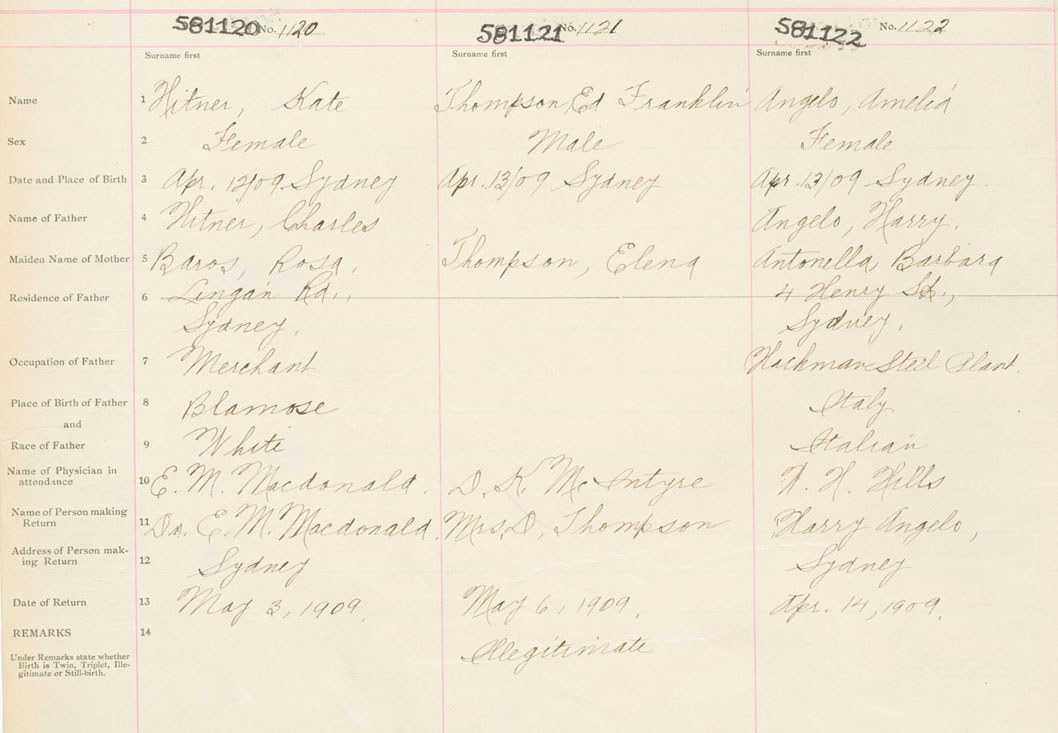 581120 No. 1120 581121 No. 1121 581122 No. 1122
Surname first Surname first Surname first
Name 1 Hitner, Kate Thompson, Ed Franklin Angelo, Amelia
Sex 2 Female Male Female
Date and Place of Birth 3 Apr. 12/09 Sydney Apr. 13/09 Sydney Apr. 13/09 Sydney.
Name of Father 4 Hitner, Charles Angelo, Harry.
Maiden Name of Mother 5 Baros, Rosa. Thompson, Elena Antonella, Barbara
Residence of Father 6 Lingan Rd., 4 Henry St.,
Sydney. Sydney.
Occupation of Father 7 Merchant Hackman Steel Plant.
Place of Birth of Father 8 Blamose Italy
and
Race of Father 9 White Italian
Name of Physician in
attendance 10 E. M. Macdonald. D. K. McIntyre W. H. Hills
Name of Person making
Return 11 Dr. E. M. Macdonald. Mrs. D. Thompson Harry Angelo,
Address of Person mak-
ing Return 12 Sydney Sydney
Date of Return 13 May 3, 1909. May 6, 1909. Apr. 14, 1909.
REMARKS 14
Illegitimate
Under Remarks state whether
Birth is Twin, Triplet, Ille-
gitimate or Still-birth.